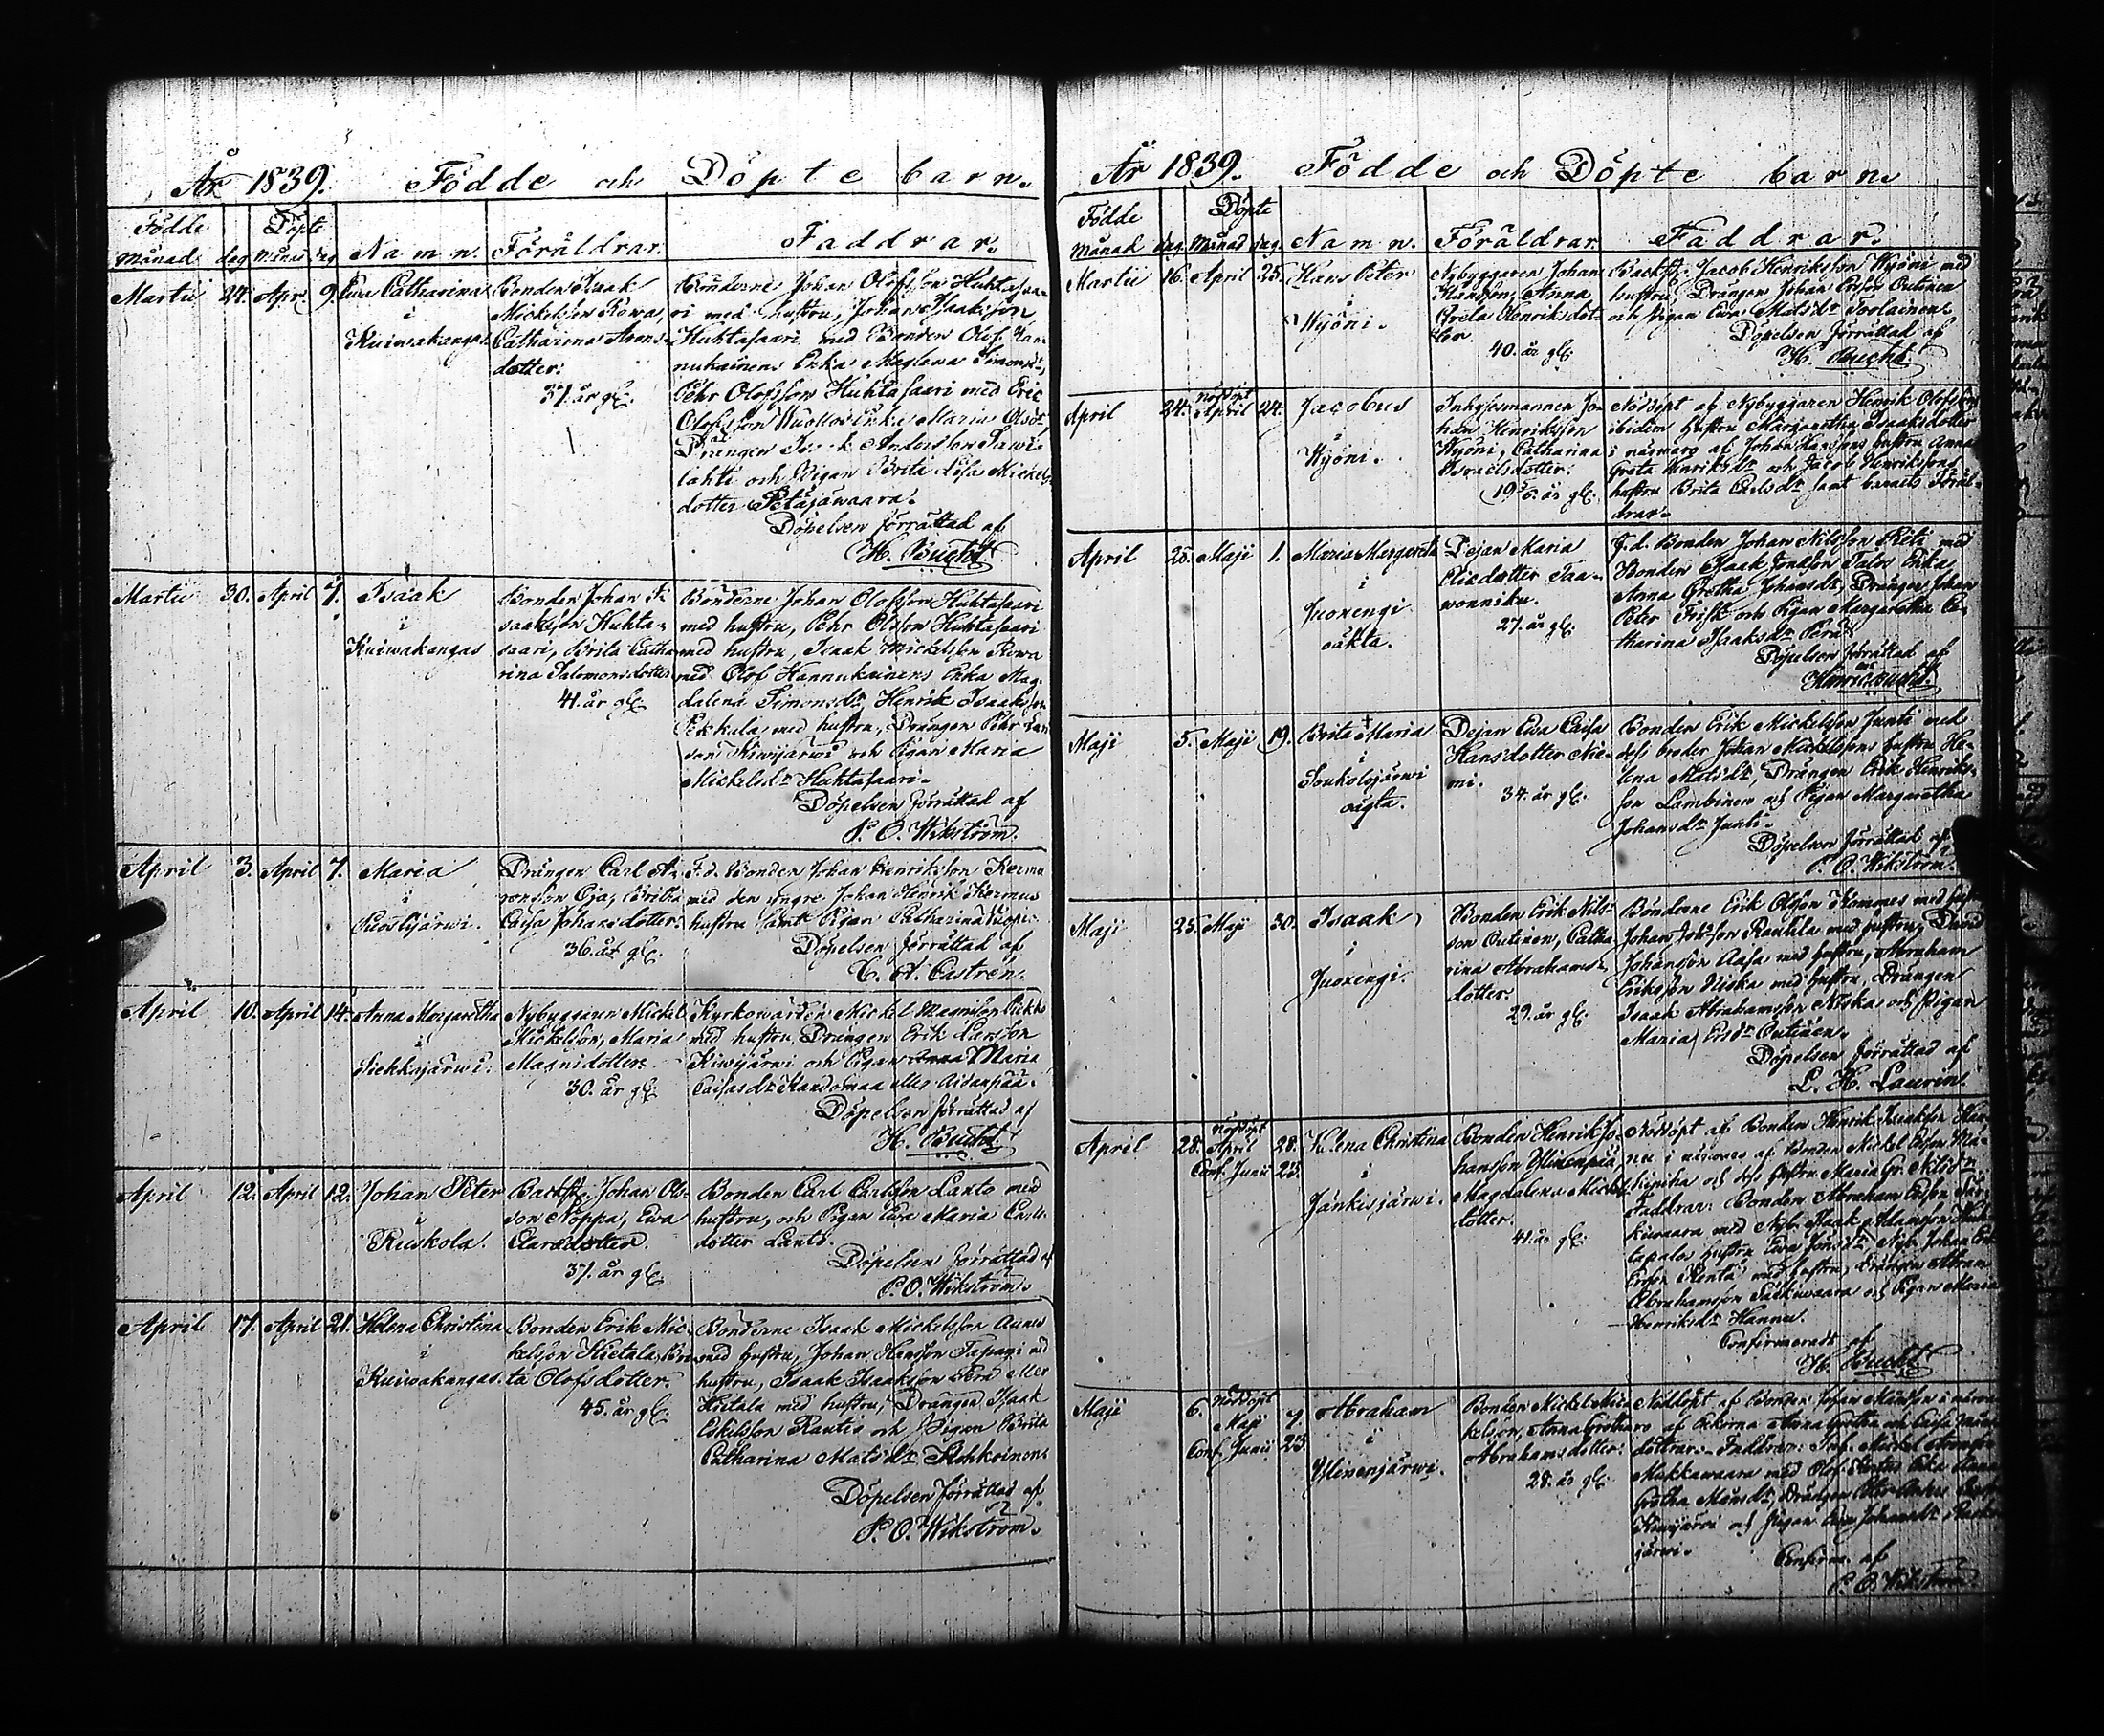 År 1839. Födde och Döpte barn.
Födde Döpte
Månad dag Månad dag Namn. Föräldrar. Faddrar.
Martii 24. Apr. 9. Ewa Catharina
i
Kuiwakangas
Bonden Isaak
Mickelsson Rowa,
Catharina Arons-
dotter.
37. år gl.
Bönderne Johan Olofsson Huhtasaa-
ri med hustru, Johan Isaaksson
Huhtasaari med Bonden Olof Han-
nukainens Enka Maglena Simonsdr,
Pehr Olofsson Huhtasaari med Eric
Olofsson Enka Maria Olsdr
Drängen Isaak Andersson Sawi-
lahti och Pigan Brita Lisa Mickels-
dotter Petäjäwaara.
Döpelsen förrättad af
H. Bucht
Martii 30. April 7. Isaak
i
Kuiwakangas
Bonden Johan I-
saaksson Huhta-
saari, Brita Catha
rina Salomonsdotter
41. år gl.
Bönderne Johan Olofsson Huhtasaari
med hustru, Pehr Olsson Huhtasaari
med hustru, Isaak Mickelsson Rowa
med Olof Hannukainens Enka Mag-
dalena Simonsdr, Henrik Isaaksson
med hustru, Drängen Pehr Lars
son Kiwijärwi och Pigan Maria
Mickelsdr Huhtasaari.
Döpelsen förrättad af
P. O. Wikström.
April 3. April 7. Maria
i
Puostijärwi.
Drängen Carl A-
ronsson Oja, Britha
Caisa Johansdotter.
36. år gl.
F.d. Bonden Johan Henriksson Kermu
med den yngre Johan Henrik Kermus
hustru samt Pigan Catharina
Döpelsen förrättad af
C. A. Castrén.
April 10. April 14. Anna Margaretha
i
Liehkajärwi.
Nybyggaren Mickel
Mickelsson, Maria
Magnidotter.
30. år gl.
Kyrkowärden Mickel Magnisson
med hustru, Drängen Erik Larsson
Kiwijärwi och Pigan Maria
Caisasdr eller
Döpelsen förrättad af
H. Bucht
April 12. April 12. Johan Peter
i
Ruskola.
Backst. Johan Ols-
son Noppa, Ewa
Clarsdotter.
37. år gl.
Bonden Carl Carlsson Lanto med
hustru, och Pigan Ewa Maria Carls-
dotter Lanto.
Döpelsen förrättad af
P. O. Wikström.
April 17. April 21. Helena Christina
i
Kuiwakangas.
Bonden Erik Mic-
kelsson Hietala, Bri-
ta Olofsdotter.
45. år gl.
Bönderne Isaak Mickelsson Aunes
med hustru, Johan Hansson Tapani med
hustru, Isaak Isaaksson eller
Hietala med hustru, Drängen Isaak
Eskilsson Rautio och Pigan Brita
Catharina Matsdr
Döpelsen förrättad af
P. O. Wikström.
År 1839. Födde och Döpte barn.
Födde Döpte
Månad dag. Månad dag. Namn. Föräldrar Faddrar.
Martii 16. April 25. Hans Peter
i
Wyöni.
Nybyggaren Johan
Hansson, Anna
Greta Henriksdot-
ter.
40. år gl.
Backst. Jacob Henriksson Wyöni med
hustru, Drängen Johan Ersson Outinen
och Pigan Ewa Matsdr Torlainen.
Döpelsen förrättad af
H. Bucht
April 24. nöddöpt April 24. Jacobus
i
Wyöni.
Inhysesmannen Jo-
han Henriksson
Wyöni, Catharina
Israelsdotter.
år gl.
Nöddöpt af Nybyggaren Henrik Olofsson
ibidem hustru Margaretha Isaaksdotter
i närwaro af Johan Hanssons hustru Anna
Greta Henriksdr och Jacob Henrikssons
hustru Brita Carlsdr samt barnets Föräl-
drar.
April 25. Maji 1. Maria Margareta
i
Juoxengi
oäkta.
Dejan Maria
Olisdotter Taa-
wonniku.
27. år gl.
F.d. Bonden Johan Nilsson med
Bonden Isaak Jonsson Talos Enka
Anna Gretha Johansdr, Drängen Johan
Peter Frist och Pigan Margaretha Ca-
tharina Isaaksdr Perä.
Döpelsen förrättad af
Henric Bucht
Maji 5. Maji 19. Brita Maria
i
Soukolojärwi
oägta.
Dejan Ewa Caisa
Hansdotter Nie-
mi.
34. år gl.
Bonden Erik Mickelsson Junti med
dess broder Johan Mickelssons hustru He-
lena Matsdr, Drängen Erik Henriks-
son Lambinen och Pigan Margaretha
Johansdr Junti.
Döpelsen förrättad af
P. O. Wikström.
Maji 25. Maji 30. Isaak
i
Juoxengi.
Bonden Erik Nils-
son Outinen, Catha
rina Abrahams-
dotter.
29. år gl.
Bönderne Erik Olsson Kommes med hustru
Johan Rantila med hustru, David
Johansson Aasa med hustru, Abraham
Eriksson Niska med hustru, Drängen
Isaak Abrahamsson Niska och Pigan
Maria Ersdr Outinen.
Döpelsen förrättad af
L. H. Laurin
April 28. nöddöpt April 28. Helena Christina
Conf. Junii 23. i
Jänkisjärwi.
Bonden Henrik Jo-
hansson Ylinenpää,
Magdalena Mickels-
dotter.
41. år gl.
Nöddöpt af Bonden Henrik Isaaksson Han-
nu i närwaro af Bonden Mickel Ersson
och dess hustru Maria Gr. Nilsdr.
Faddrar: Bonden Abraham Ersson Sär-
kiwaara med Nyb. Isaak Adamsson
hustru Ewa Jönsdr, Nyb. Johan
Ersson med hustru, Drängen Abram
Abrahamsson Särkiwaara och Pigan Maria
Henriksdr Hannu.
Confirmeradt af
H. Bucht
Maji 6. nöddöpt Maji 7. Abraham
Conf. Junii 23. i
Ylinenjärwi.
Bonden Mickel Mic-
kelsson, Anna Gretha
Abrahamsdotter.
28. år gl.
Nöddöpt af Bonden Johan Månsson i närwa-
ro af Pekorna Anna Gretha och Caisa Måns-
döttrar. Faddrar: Inh. Mickel
Mukkawaara med Olof Enka Anna
Gretha Månsdr, Drängen
Kiwijärwi och Pigan Johansdr
järwi.
Confirm. af
P. O. Wikström